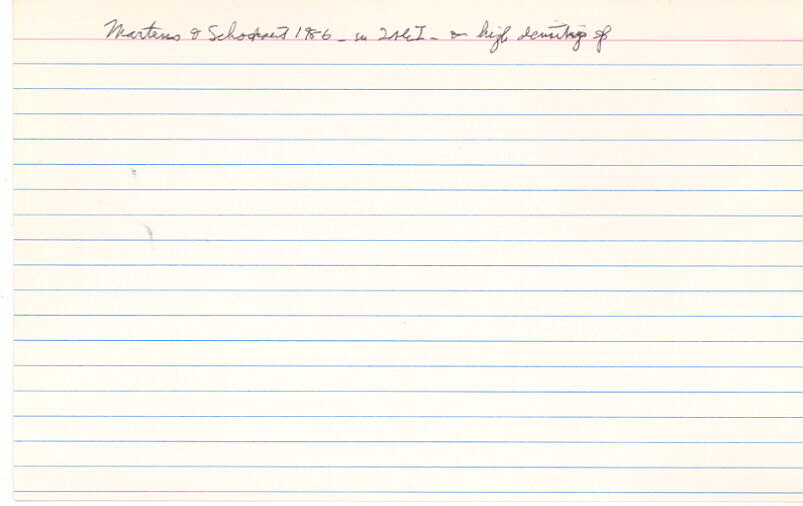 Martens & Schockaert 1986 - in - on high densities of